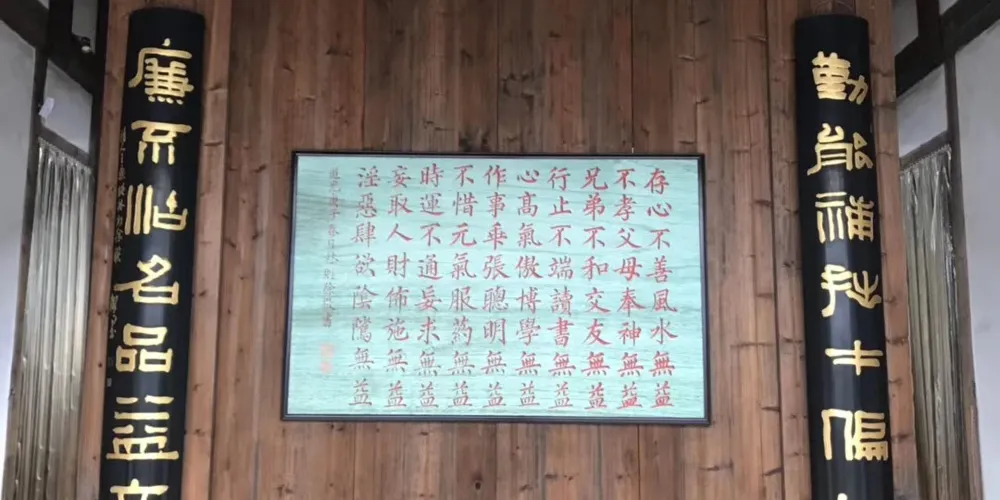 勤能補拙才偏
存心不善風水無益
不孝父母奉神無益
兄弟不和交友無益
行止不端讀書無益
心髙氣傲博學無益
作事乖張聰明無益
不惜元氣服药無益
時運不通妄求無益
妄取人財佈施無益
淫惡肆欲陰騭無益
廉不沽名品益